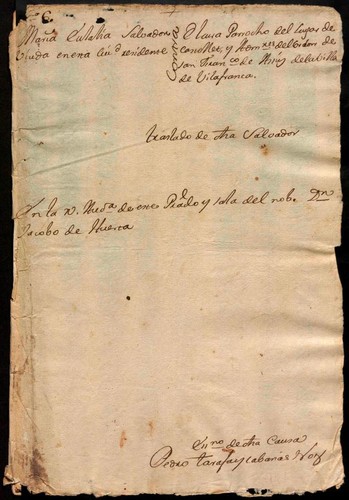 Maria Eulalia Salvador
Viuda en esta Ciud. residente
Contra
El cura Parrocho del Lugar de
canolles, y Herm.nos del Orden de
San Fran.co de Assis de la Villa
de Vilafranca.
traslado de dha Salvador
En la R. Aud.a de
y sala del nob. Dn
Jacobo de Huerta
Essno de dha Causa
Pedro Tarafa y Cabanas Not.